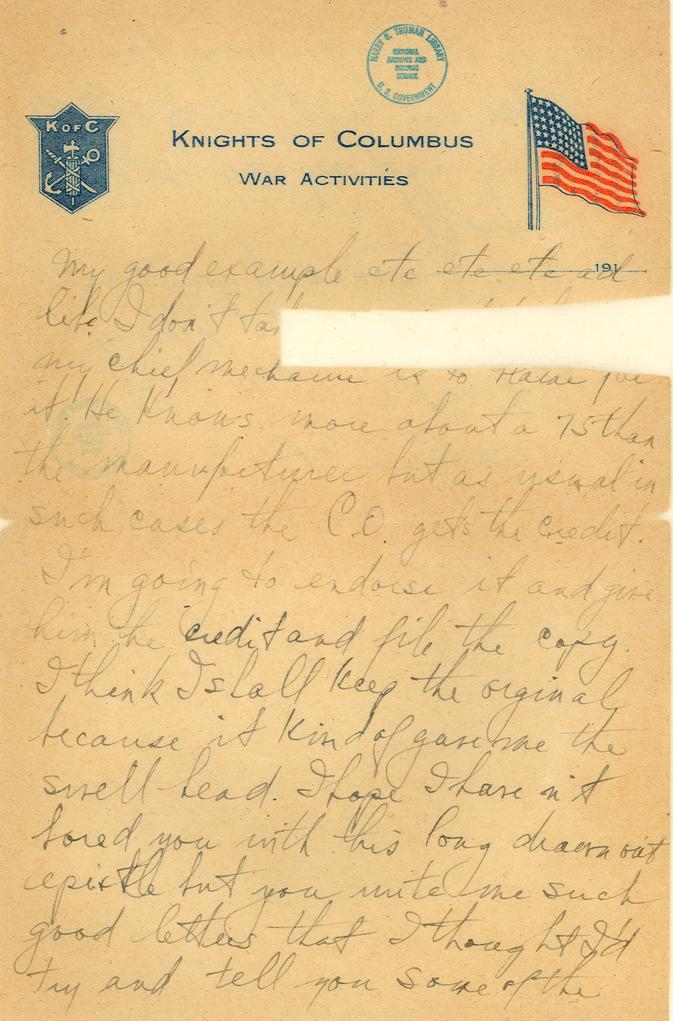 HARRY S. TRUMAN LIBRARY
NATIONAL
ARCHIVES AND
RECORDS
SERVICE
U. S. GOVERNMENT
K OF C
KNIGHTS OF COLUMBUS
WAR ACTIVITIES
191
My good example etc etc etc ad
lib. I don't
my chief mechanic is to
it. He knows more about a 75 than
the manufacturer but as usual in
such cases the C.O. gets the credit.
I'm going to endorse it and give
him the credit and file the copy.
I think I shall keep the orginal
because it kind of gave me the
swell head. I hope I have n't
bored you with this long drawn out
epistle but you write me such
good letters that I thought I'd
try and tell you some of the